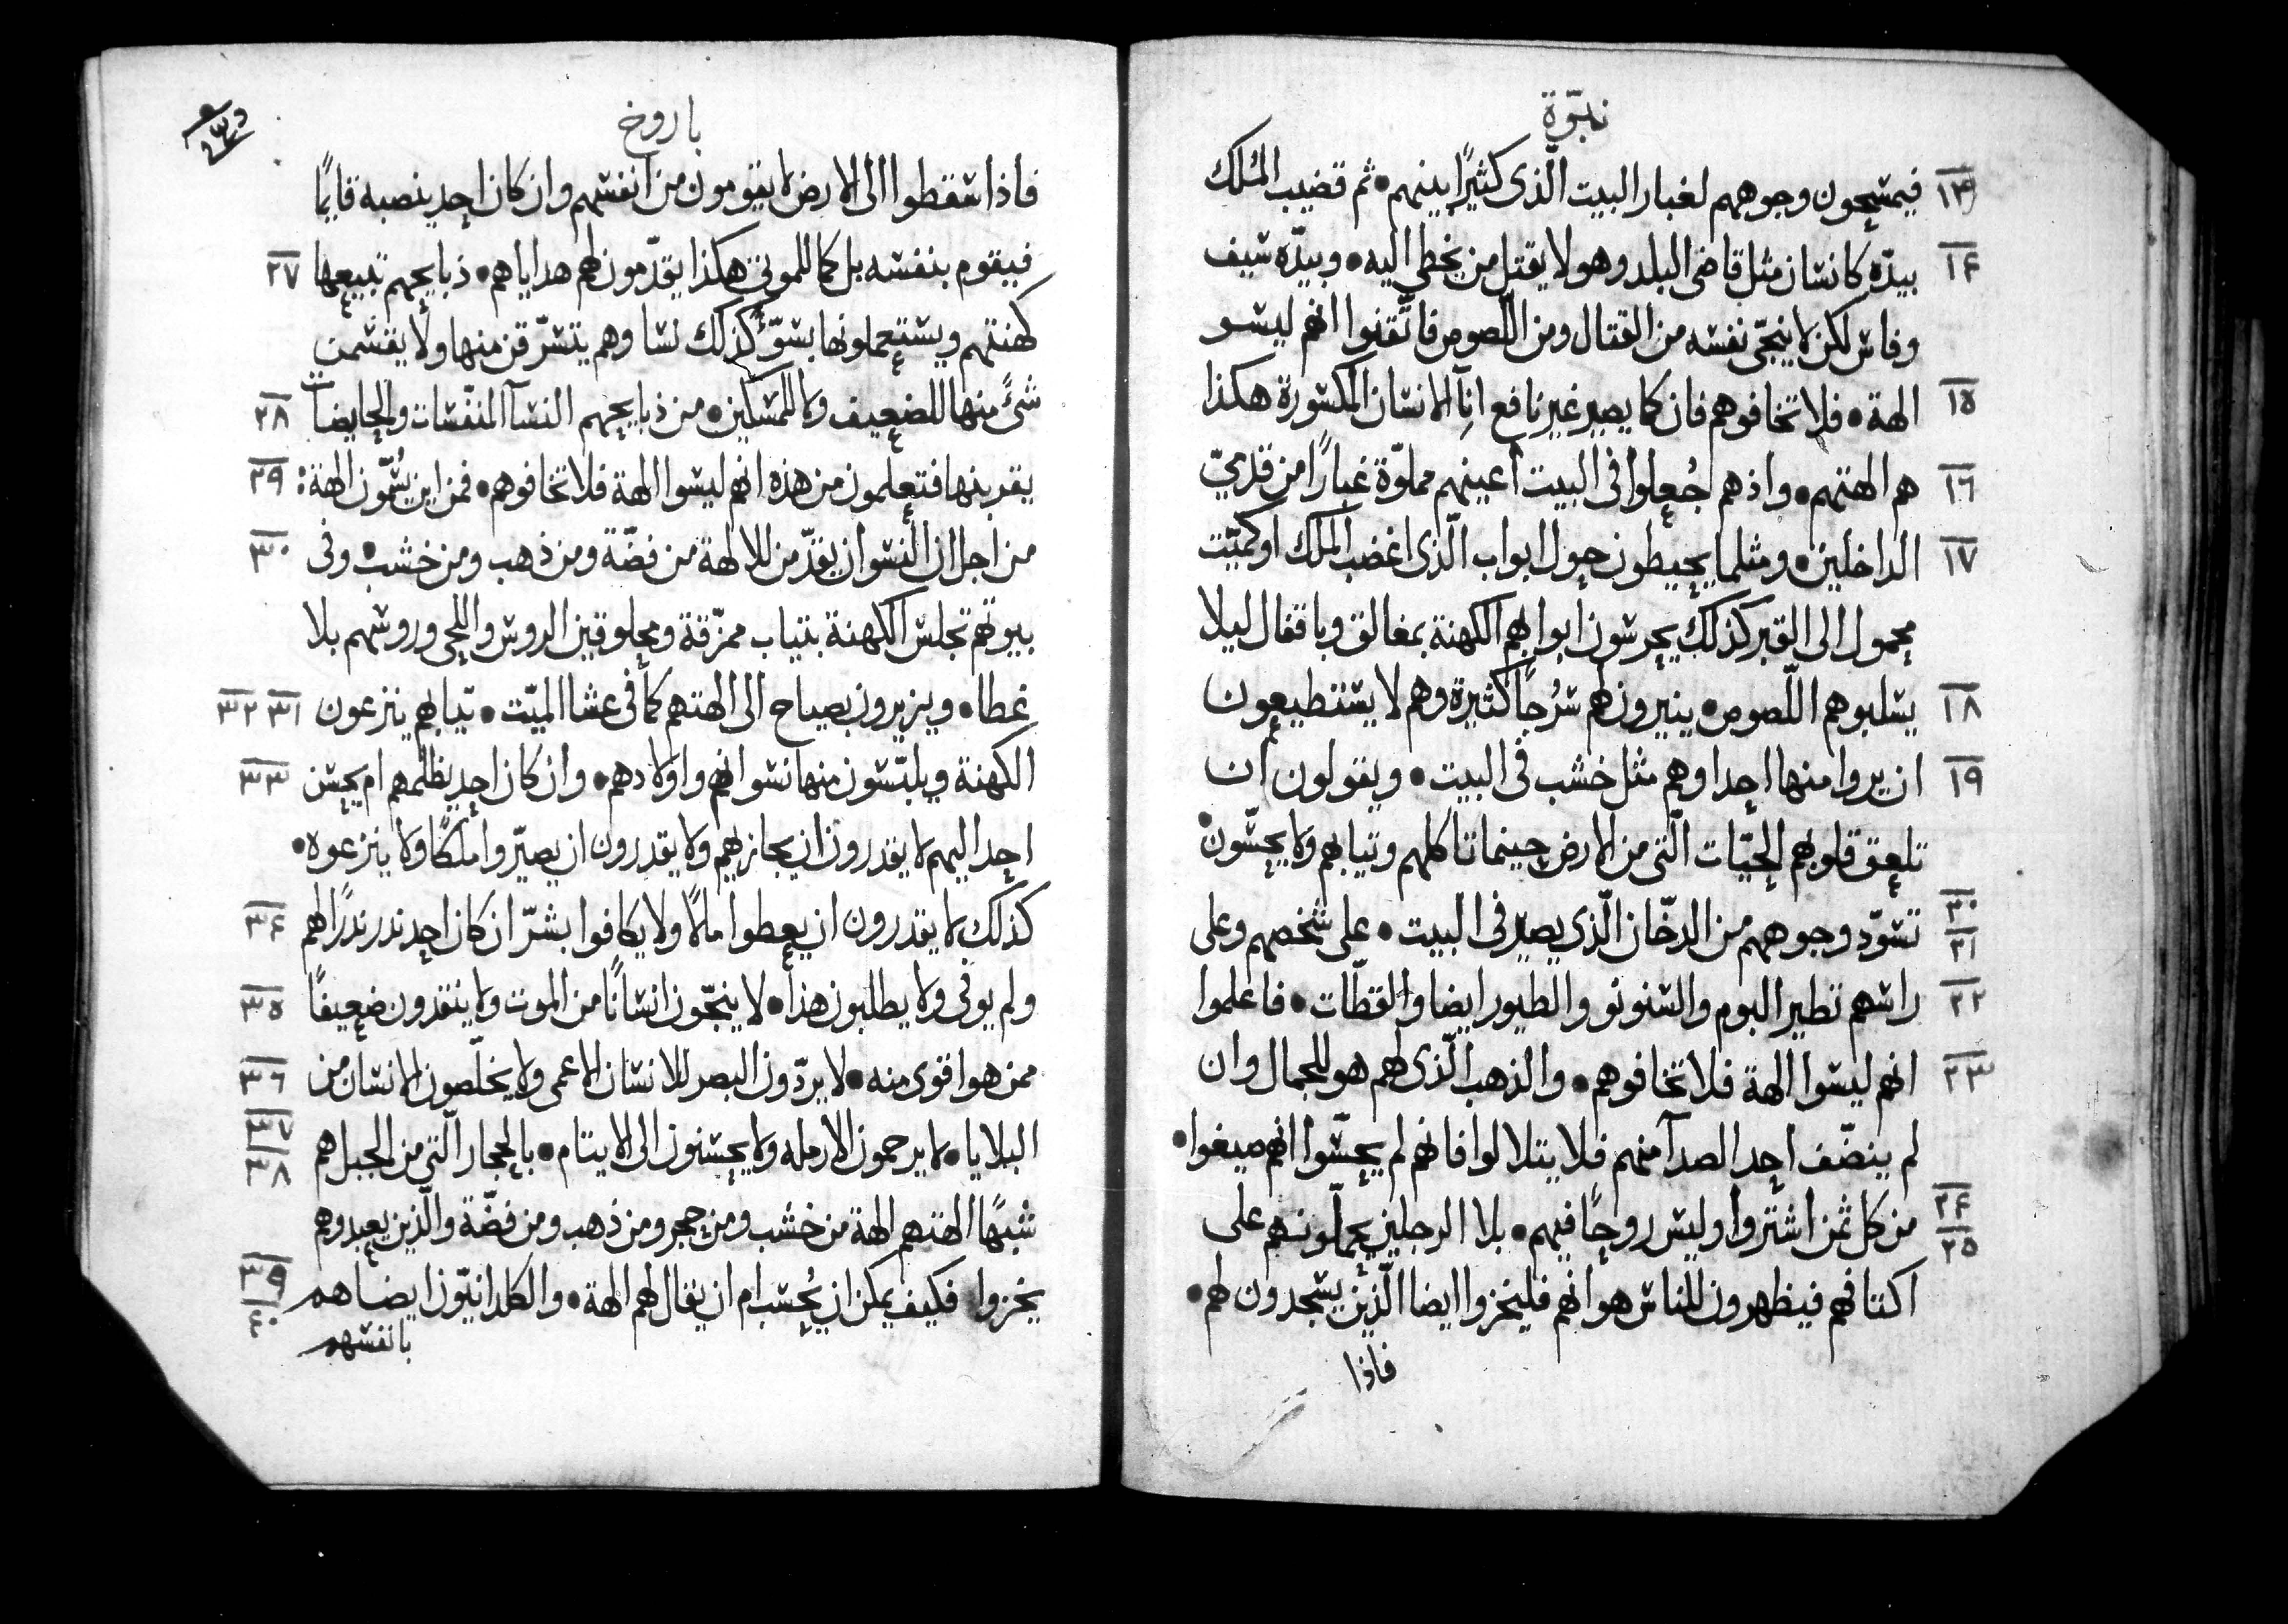 نبوّة
١٣ فيمسحون وجوههم لغبار البيت الّذى كثيرًا بينهم • ثم قضيب المُلك
١٤ بيدّه كانسان مثل قاضى البلد وهو لا يقتل من يخطى اليه • وبيدّه سيف
وفاس لكن لا ينجّى نفسه من القتال ومن اللّصوص فاتّقنوا انهم ليسو
١٥ الهة • فلا تخافوهم فان كما يصير غير نافع انآ الانسان المكسورة هكذا
١٦ هم الهتهم • واذ هم جُعلوا فى البيت أعينهم مملوّة غبارًا من قدمىّ
١٧ الداخلين • ومثلما يحيطون حول ابواب الّذى اغضب الملك او كميّت
محمول الى القبر كذلك يحرسون ابوابهم الكهنة بمغالق وباقفال ليلا
١٨ يسلبوهم اللّصوص • ينيرون لهم سُرجًا كثيرة وهم لا يستطيعون
١٩ ان يروا منها احدا وهم مثل خشب فى البيت • ويقولون ان
تلعق قلوبهم الحيّات الّتى من الارض حينما تاكلهم وتيابهم ولا يحسّون •
٢٠ ٢١ تسوّد وجوههم من الدخّان الّذى يصير فى البيت • على شخصهم وعلى
٢٢ راسهم تطير البوم والسنونو والطيور ايضا والقطّات • فاعلموا
٢٣ انهم ليسوا الهة فلا تخافوهم • والذهب الّذى لهم هو للجمال وان
لم ينضّف احد الصدآ منهم فلا يتلالوا فانهم لم يحسّوا انهم صيغوا •
٢٤ ٢٥ من كل ثمن اشتروا وليس روحًا فيهم • بلا الرجلين يحملّونهم على
اكتافهم فيظهرون للناس هوانهم فليخزوا ايضا الّذين يسجدون لهم •
فاذا
باروخ
فاذا سقطوا الى الارض لا يقومون من انفسهم وان كان احد ينصبه قايمًا
فيقوم بنفسه بل كما للموتى هكذا يقدّمون لهم هداياهم • ذبايحهم تبيعها ٢٧
كهنتهم ويستعملونها بسوّء كذلك نسا وهم يتسرّقن منها ولا يقسمت
شئً منها للضعيف ولا للمسكين • من ذبايحهم النسآ المنفّسات والحايضات ٢٨
يقربنها فتعلمون من هذه انهم ليسوا الهة فلا تخافوهم • فمن اين يسُمّون الهة : ٢٩
من اجل ان النسوان يقدّمن للالهة من فضّة ومن ذهب ومن خشب • وفى ٣٠
بيوتهم تجلس الكهنة بتياب ممزّقة ومحلوقين الروس واللحى وروسهم بلا
غطا • ويزيرون بصياح الى الهتهم كما فى عشا الميّت • تيابهم ينزعون ٣١ ٣٢
الكهنة ويلبّسون منها نسوانهم واولادهم • وان كان احد يظلمهم ام يحسن ٣٣
احد اليهم لا يقدرون ان يجازيهم ولا يقدرون ان يصيّروا ملكًا ولا ينزعوه •
كذلك لا يقدرون ان يعطوا مالًا ولا يكافوا بشرّ ان كان احد ندر ندرًا لهم ٣٤
ولم يوفى ولا يطلبون هذا • لا ينجّون انسانًا من الموت ولا ينقدون ضعيفًا ٣٥
ممن هو اقوى منه • لا يردّون البصر للانسان الاعمى ولا يخلّصون الانسان من ٣٦
البلايا • لا يرحمون الارمله ولا يحسنون الى الايتام • بالحجار الّتى من الجبل هم ٣٧ ٣٨
شبهًا الهتهم الهة من خشب ومن حجر ومن ذهب ومن فضّة والّذين يعبدوهم
يخزوا فكيف يمكن ان يُحسب ام ان يقال لهم الهة • والكلدانيّون ايضا هم ٣٩ ٤٠
بانفسهم